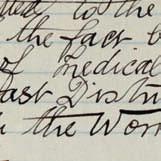 to the
the fact b
of medical
East Distri
the Wom